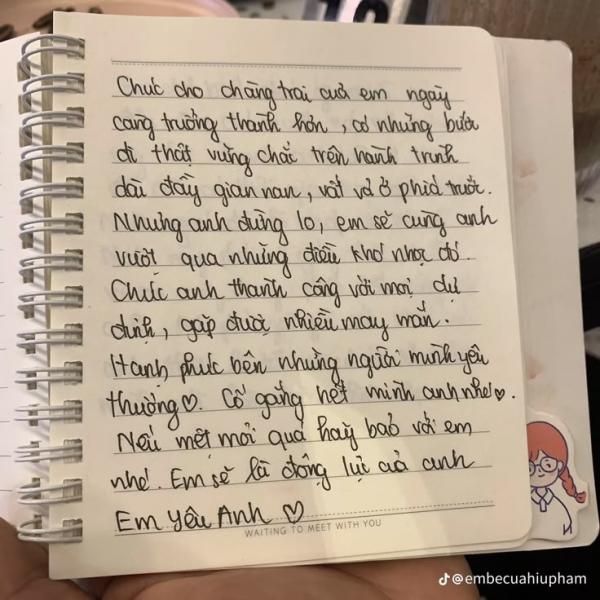 Chúc cho chàng trai của em ngày
càng trưởng thành hơn, có những bước
đi thật vững chắc trên hành trình
dài đầy gian nan, vất vả ở phía trước.
Nhưng anh đừng lo, em sẽ cùng anh
vượt qua những điều khó nhọc đó.
Chúc anh thành công với mọi dự
định, gặp được nhiều may mắn.
Hạnh phúc bên những người mình yêu
thương♡. Cố gắng hết mình anh nhé♡.
Nếu mệt mỏi quá hãy bảo với em
nhé. Em sẽ là động lực của anh
Em yêu Anh ♡
WAITING TO MEET WITH YOU
@embecuahiupham